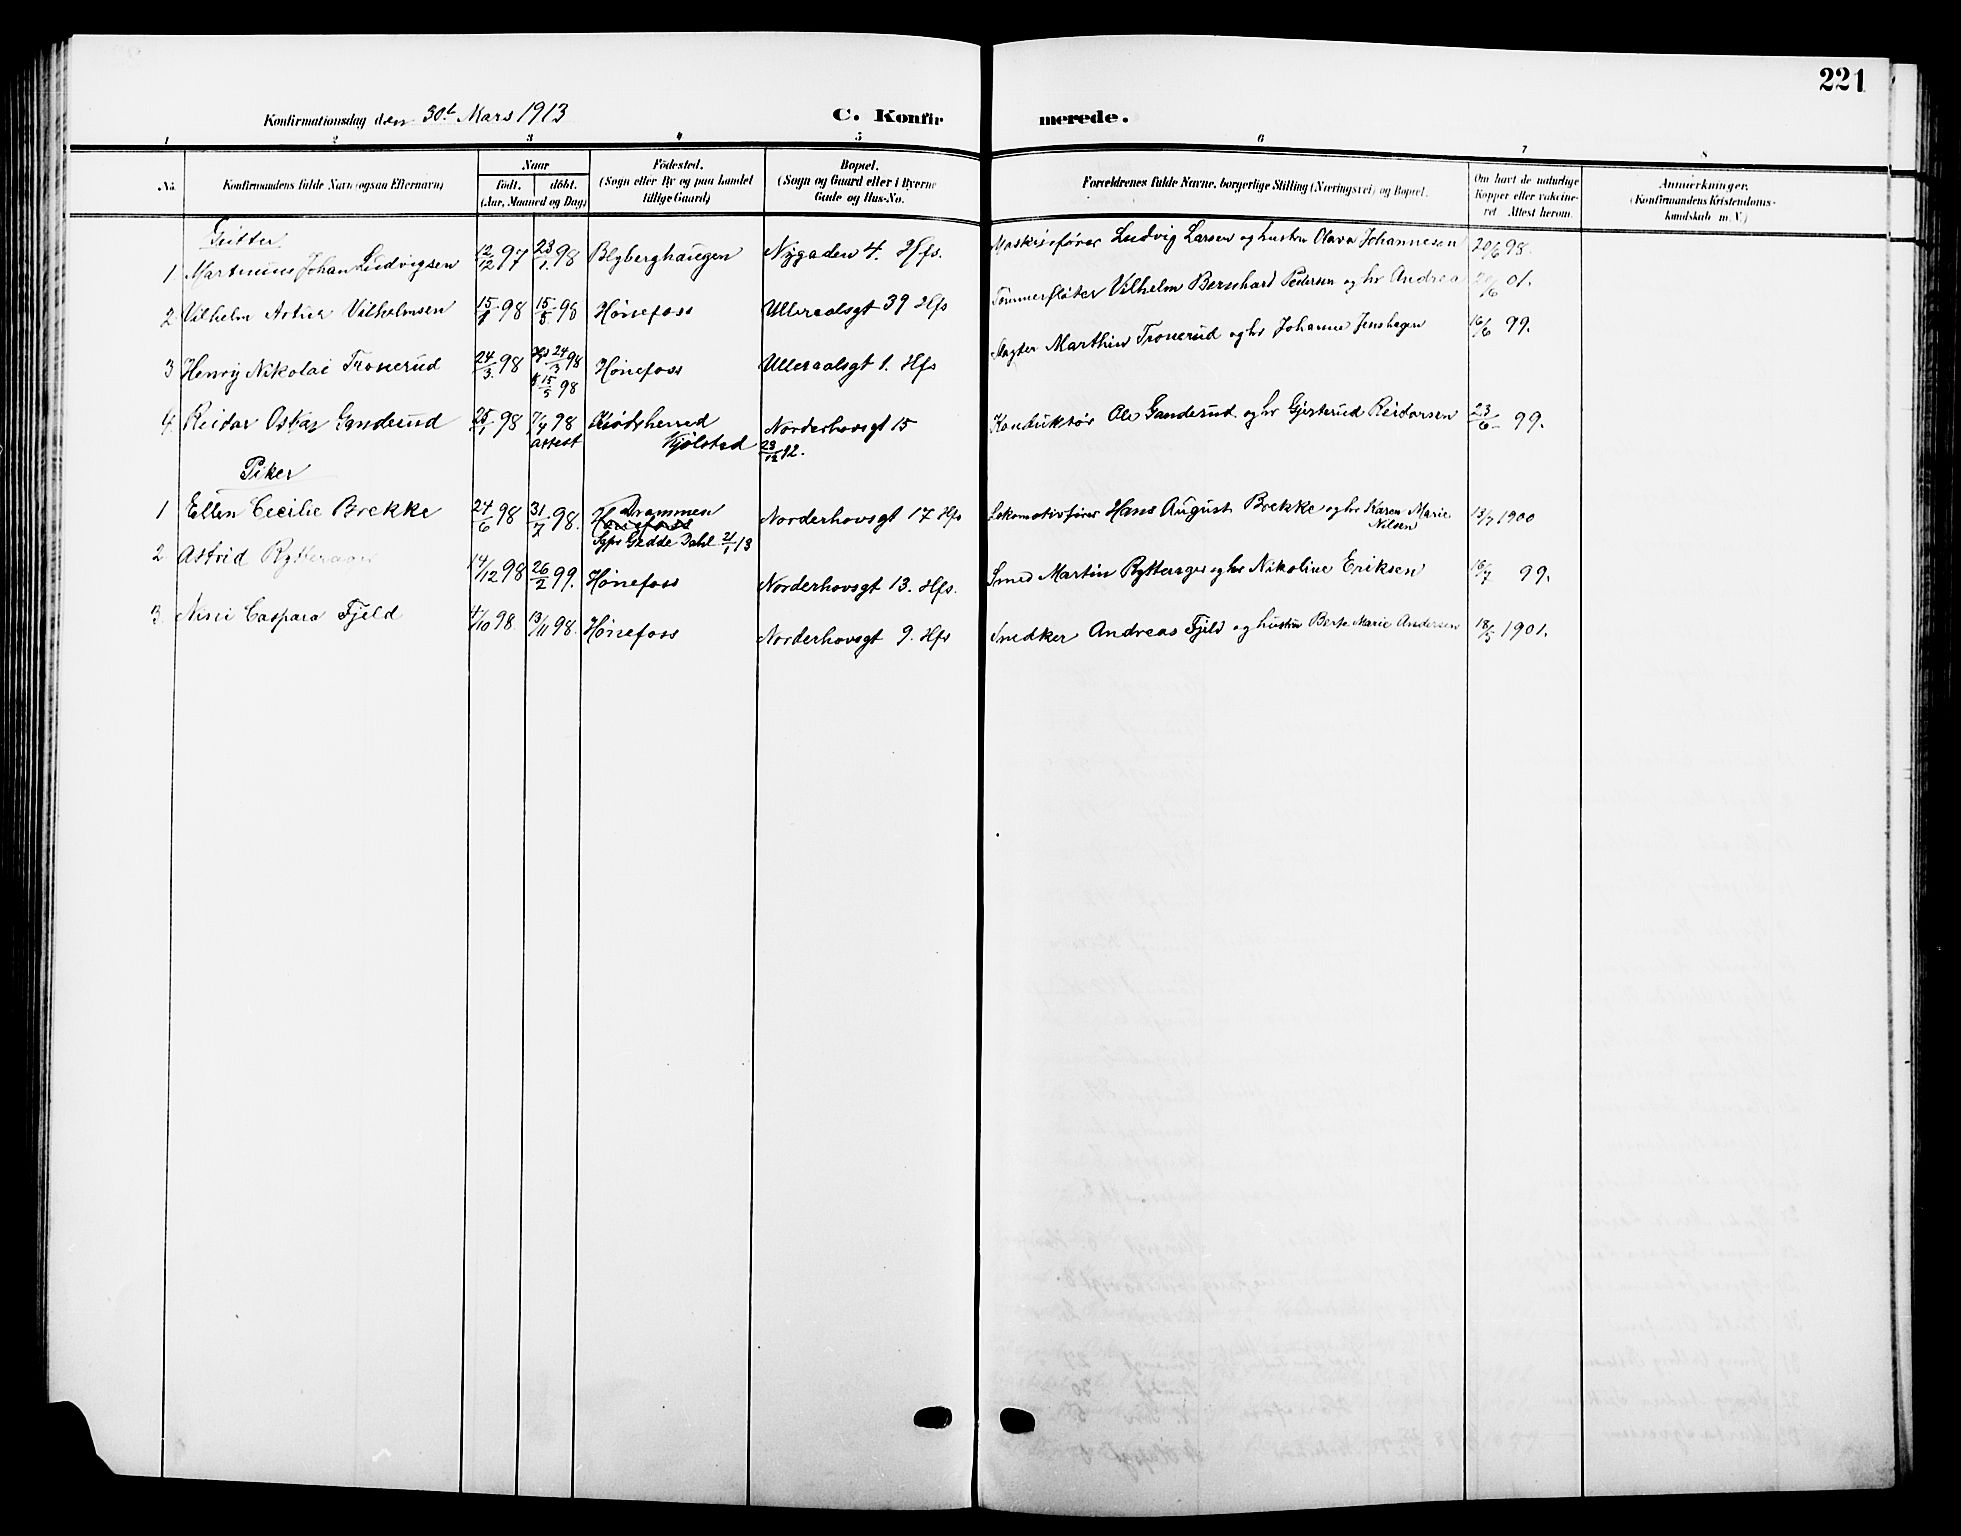 221
Konfirmationsdag den 30te Mars 1913 C. Konfirmerede.
1 2 3 4 5 6 7 8
No. Konfirmandens fulde Navn (ogsaa Efternavn) Naar født. døbt. (Aar, Maaned og Dag) Fødested. (Sogn eller By og paa Landet tillige Gaard) Bopæl. (Sogn og Gaard eller i Byerne Gade og Hus-No. Forældrenes fulde Navne, borgerlige Stilling (Næringsvei) og Bopæl. Om havt de naturlige Kopper eller vakcineret Attest herom. Anmærkninger. (Konfirmandens Kristendomskundskab m. V.)
Gutter
1 Martinius Johan Ludvigsen 12/12 97 23/1 98 Blyberghaugen Nygaden 4. Hfs. Maskinfører Ludvig Larsen og hustru Olava Johannesen 20/6 98.
2 Vilhelm Artur Vilhelmsen 98 15/5 98 Hønefoss Ulleraalsgt 39 Hfs Tømmerfløter Vilhelm Bernhard Pedersen og hr Andrea 01.
3 Henry Nikolai Tronerud 24/3 98 24/3 98 Hønefoss Ulleraalsgt 1. Hfs Slagter Marthin Tronerud og hr Johanne Jenshagen 16/6 99.
15/5 98
4 Reidar Oskar Ganderud 25/1 98 7/4 98 Norderhovsgt 15 Konduktør Ole Ganderud og hr Gjerterud Reidarsen 23/6 99.
attest Kjølstad 23/12 12.
Piker
1 Ellen Cecilie Brekke 24/6 98 31/7 98. Drammen Norderhovsgt 17 Hfs Lokomotivfører Hans August Brekke og hr Karen Marie Nilsen 13/7 1900
Hønefoss
Gedde Dahl 21/1 13
2 Astrid Rytterager 14/12 98 26/2 99. Hønefoss Norderhovsgt 13. Hfs. Smed Martin Rytterager og hr Nikoline Eriksen 16/7 99.
3 Nini Caspara Fjeld 4/10 98 13/11 98. Hønefoss Norderhovsgt 9. Hfs Snedker Andreas Fjeld og hustru Marie Andersen 18/5 1901.